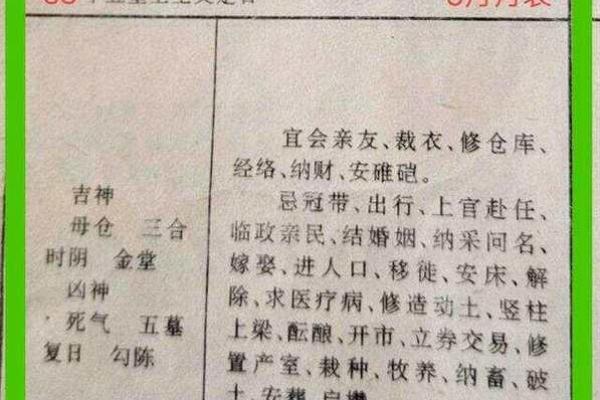 吉神
母仓 三合
时阴 金堂
凶神
死气 五墓
复日 勾陈
宜会亲友、裁衣、修仓库、
经络、纳财、安碓硙。
忌冠带、出行、上官赴任、
临政亲民、结婚姻、纳采问名、
嫁娶、进人口、移徙、安床、解
除、求医疗病、修造动土、竖柱
上梁、酝酿、开市、立券交易、修
置产室、栽种、牧养、纳畜、破
土、安葬、启攒